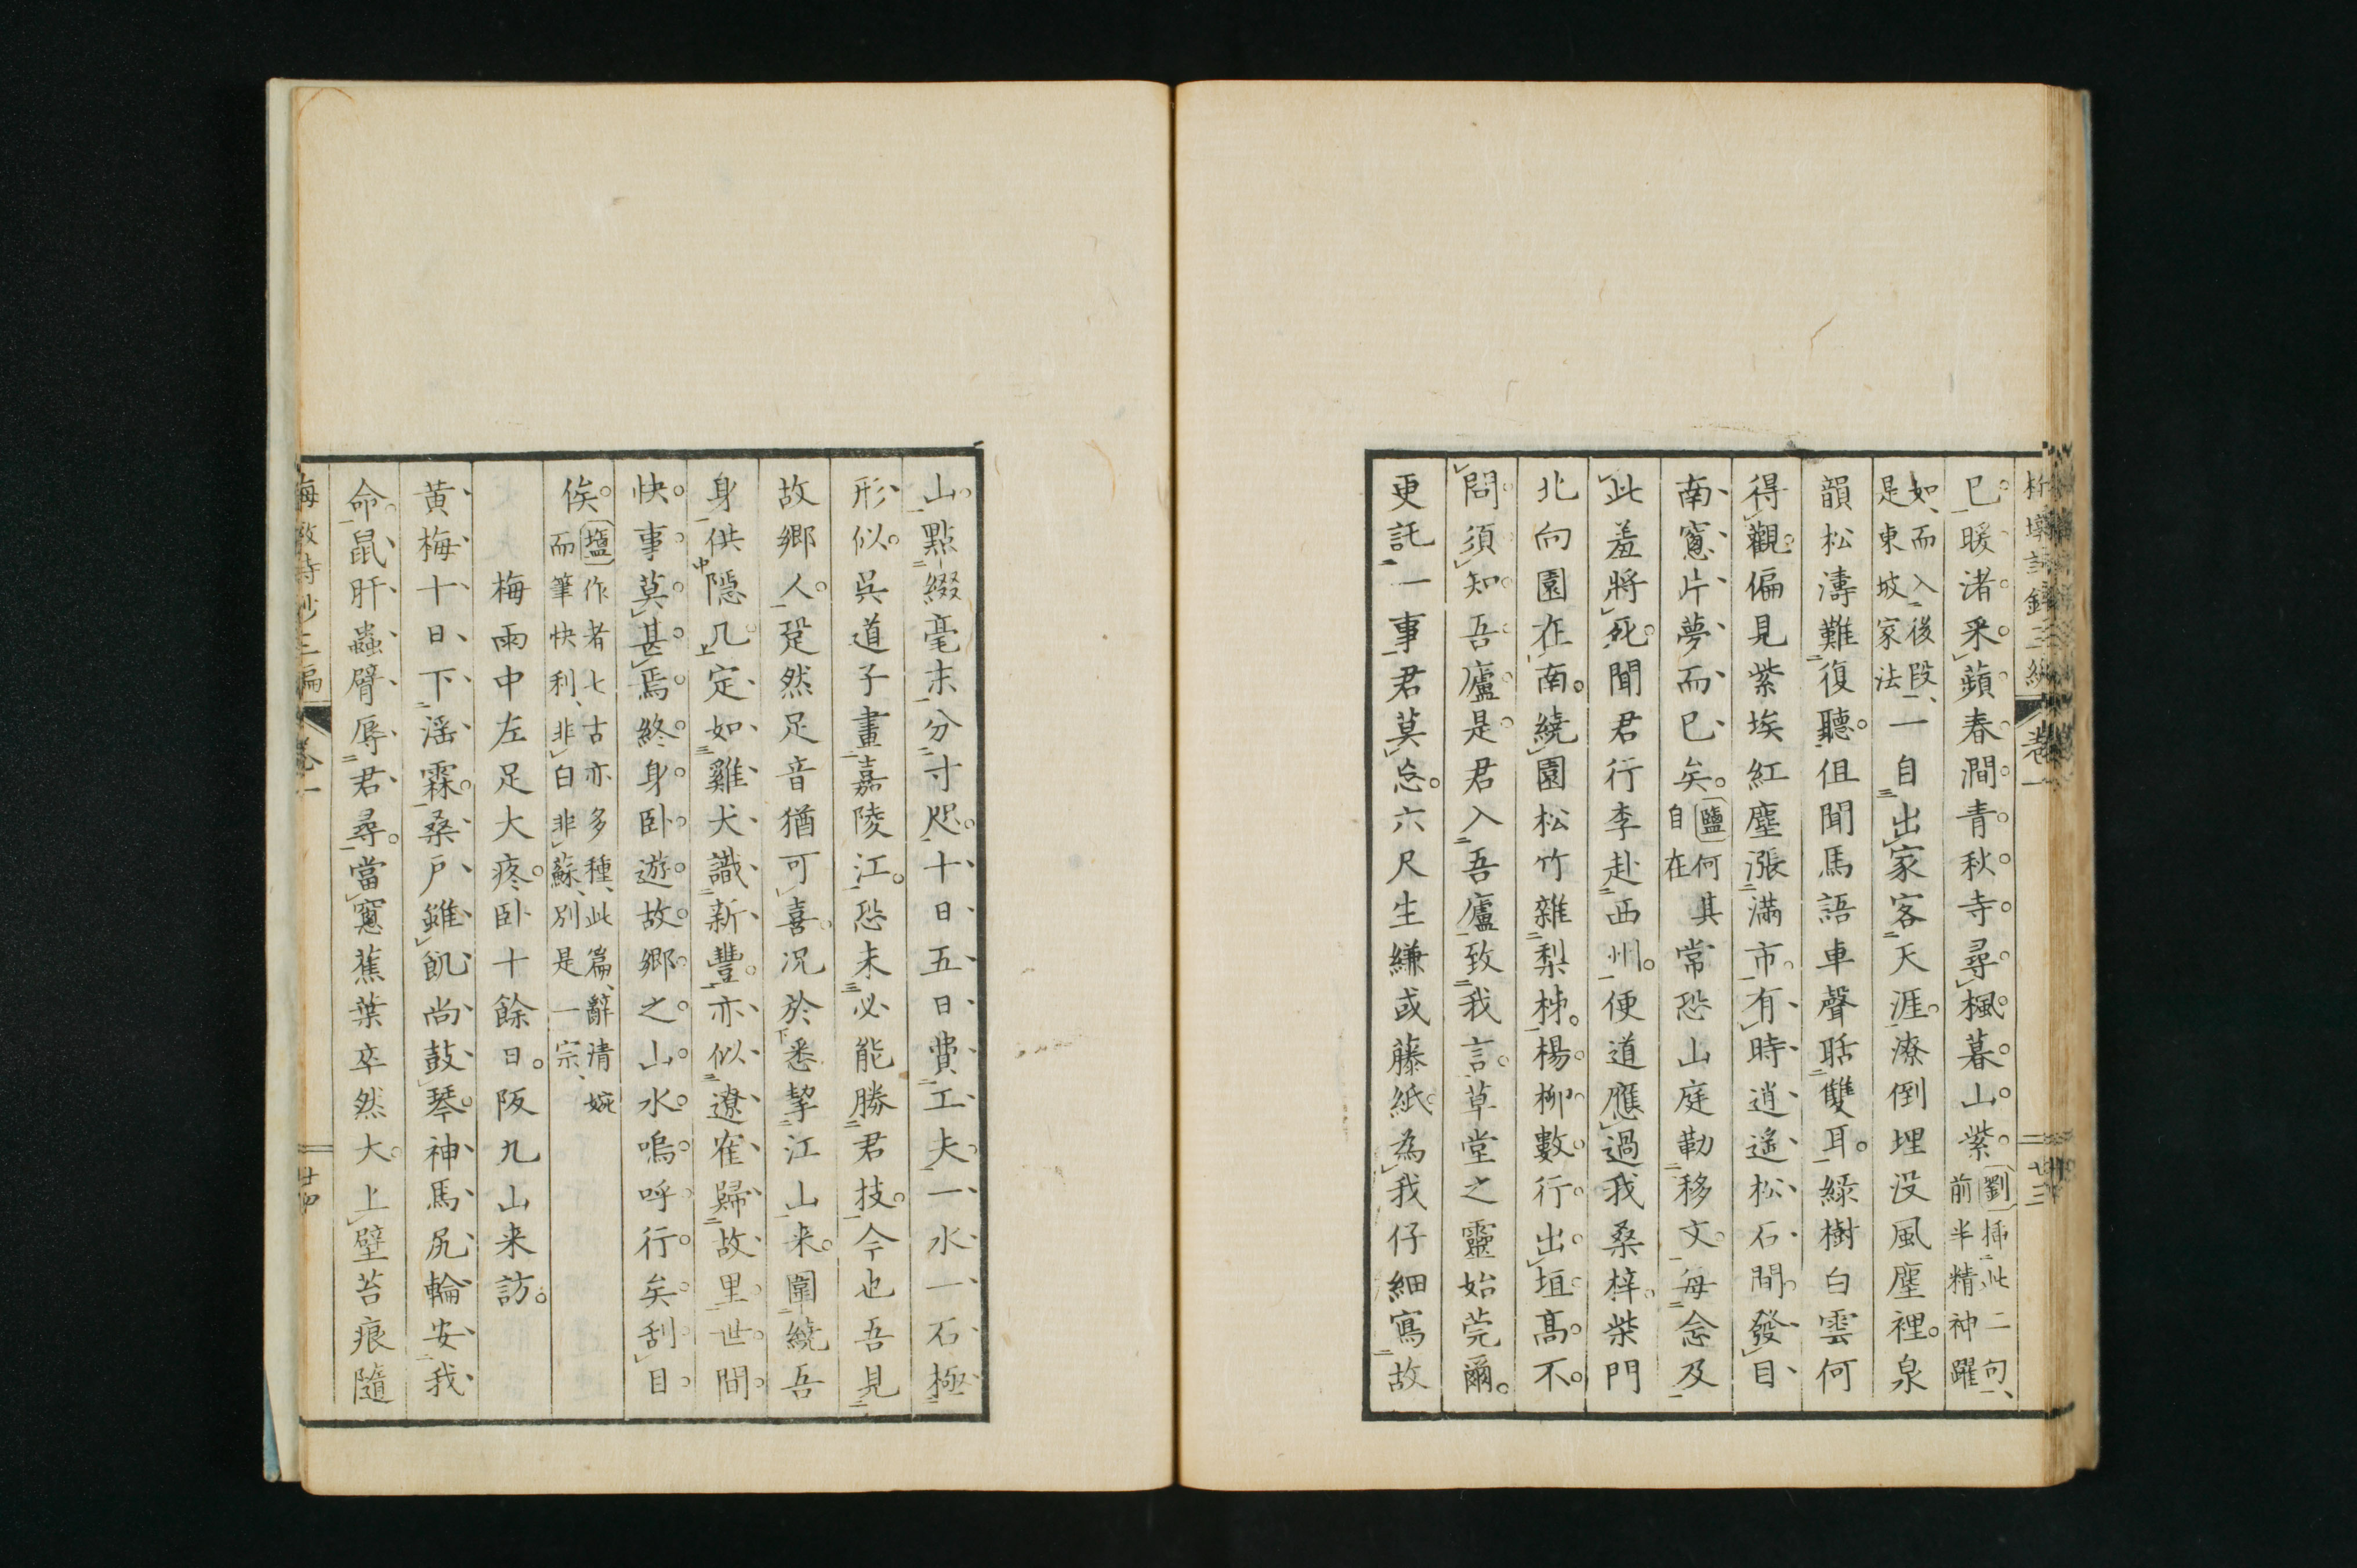 巳暖渚采蘋春澗青秋寺尋楓暮山紫劉挿此二句前半精神躍
如而入後段是東坡家法一自出家客天涯潦倒埋没風塵裡泉
韻松濤難復聽但聞馬語車聲聒雙耳綠樹白雲何
得觀偏見紫埃紅塵漲滿市有時逍遙松石間發目
南窻片夢而已矣鹽何其自在常恐山庭勒移文每念及
此羞將死聞君行李赴西州便道應過我桑梓柴門
北向園在南繞園松竹雜梨柹楊柳數行出垣髙不
問須知吾廬是君入吾廬致我言草堂之靈始莞爾
更託一事君莫忘六尺生縑或藤紙為我仔細寫故
山點綴毫末分寸咫十日五日費工夫一水一石極
形似吳道子畫嘉陵江恐未必能勝君技今也吾見
故鄉人跫然足音猶可喜况於悉挈江山来圍繞吾
身供隱几定如雞犬識新豐亦似遼隺歸故里世間
快事莫甚焉終身卧遊故鄉之山水嗚呼行矣刮目
俟鹽作者七古亦多種此篇辭清婉而筆快利非白非蘇別是一宗
梅雨中左足大疼卧十餘日阪九山来訪
黄梅十日下滛霖桑戶雖飢尚鼓琴神馬尻輪安我
命鼠肝蟲臂辱君尋當窻蕉葉卒然大上壁苔痕隨
卷一
廿四